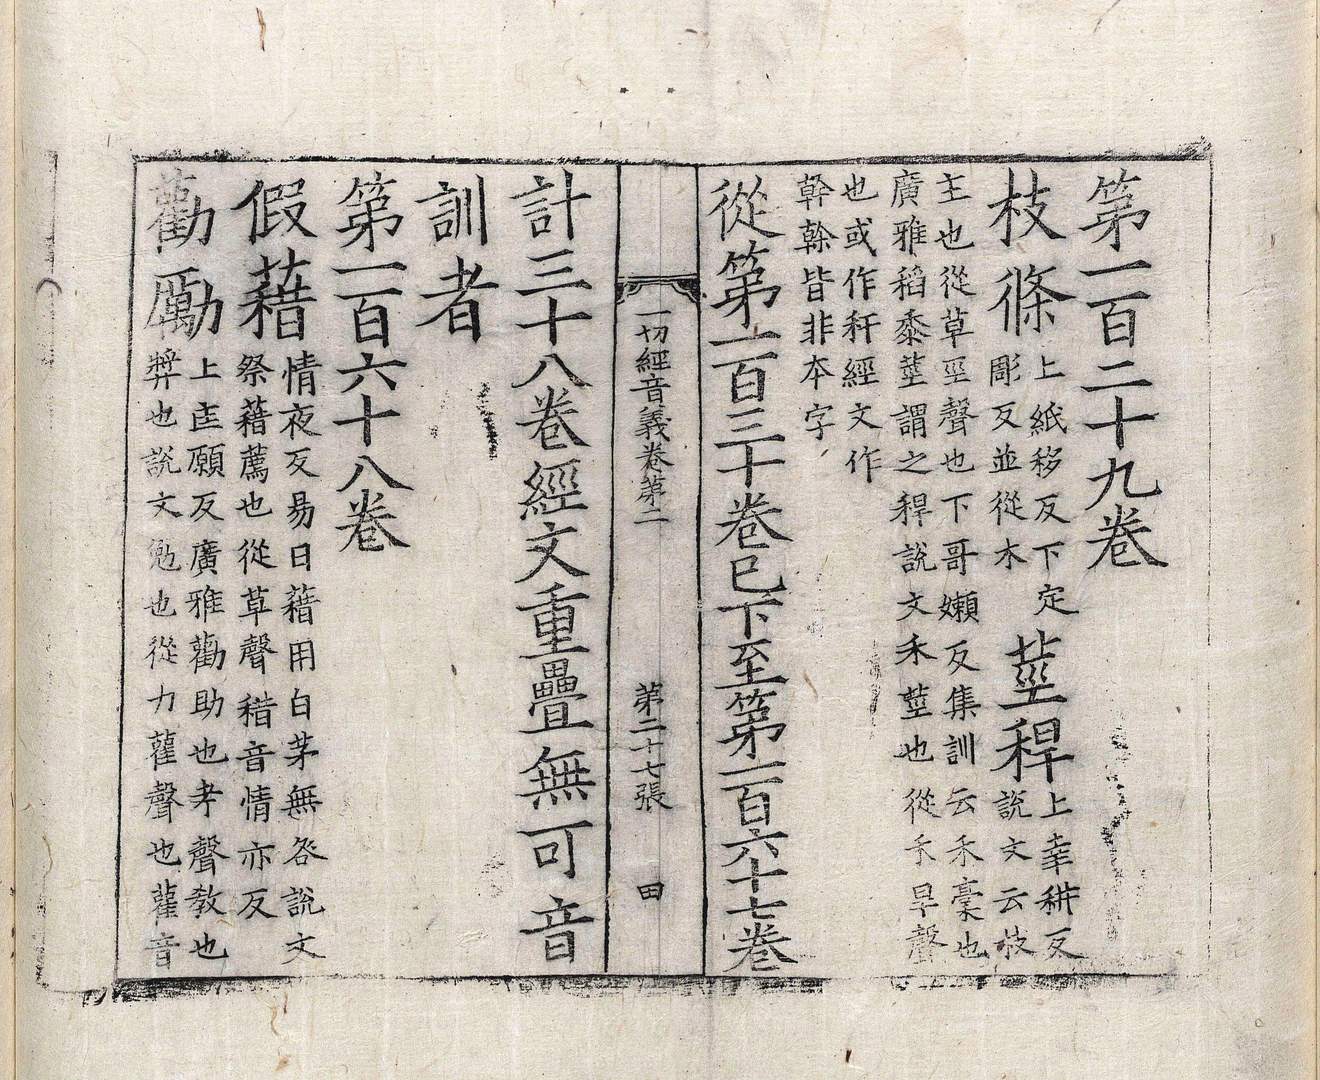 第一百二十九卷
枝條
上紙移反下定
彫反並從木
莖稈
上幸耕反
說文云枝
主也從草巠聲也下哥嬾反集訓云禾稾也
廣雅稻黍莖謂之稈說文禾莖也從禾旱聲
也或作秆經文作
幹榦皆非本字
從第一百三十卷已下至第一百六十七卷
一切經音義卷第二
第二十七張
田
計三十八卷經文重疊無可音
訓者
第一百六十八卷
假藉
情夜反易曰藉用白茅無咎說文
祭藉薦也從草聲耤音情亦反
勸勵
上匡願反廣雅勸助也孝聲教也
獎也說文勉也從力雚聲也雚音